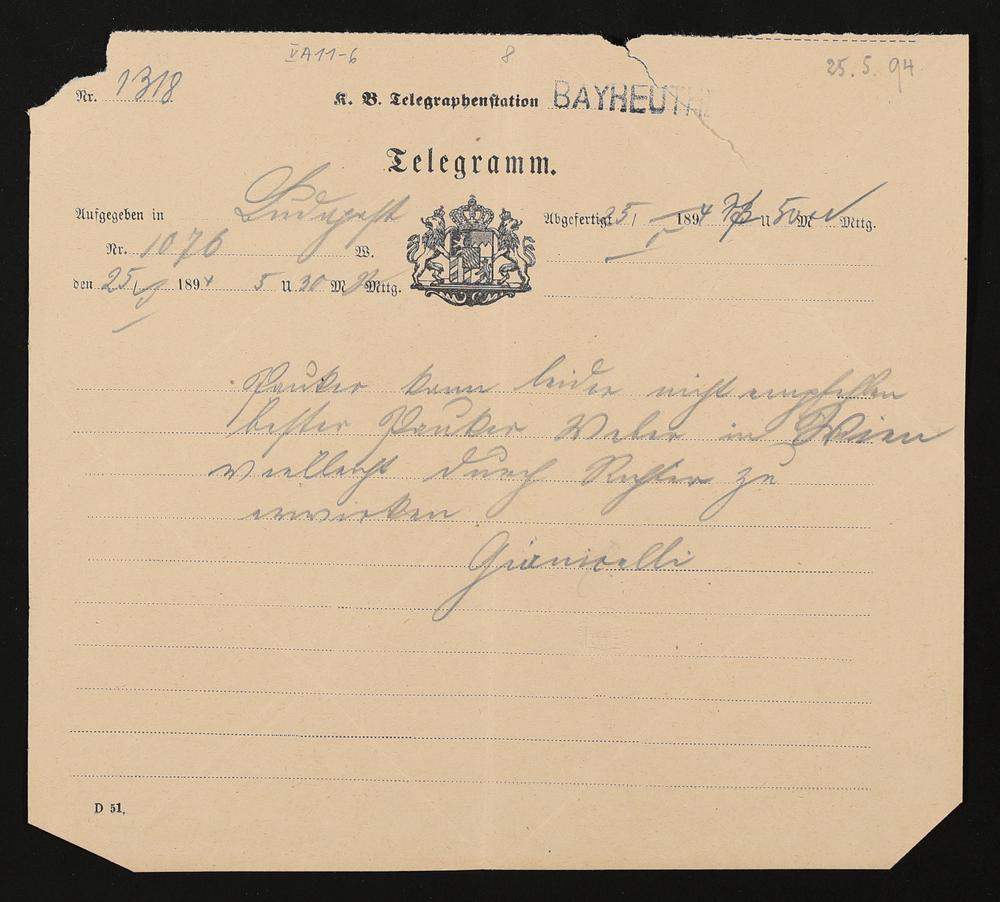 V A 11-6 8 25. 5. 94
Nr. 1318
K. B. Telegraphenstation BAYREUTH
Telegramm.
Aufgegeben in Budapest Abgefertigt 25/5 1894 U 50 M Mttg.
Nr. 1076 W.
den 25/5 1894 5 U 30 M Mttg.
Pauker kann leider nicht empfehlen
bester Pauker Weber in Wien
vielleicht durch Richter zu
erwirken
Gianicelli
D 51.